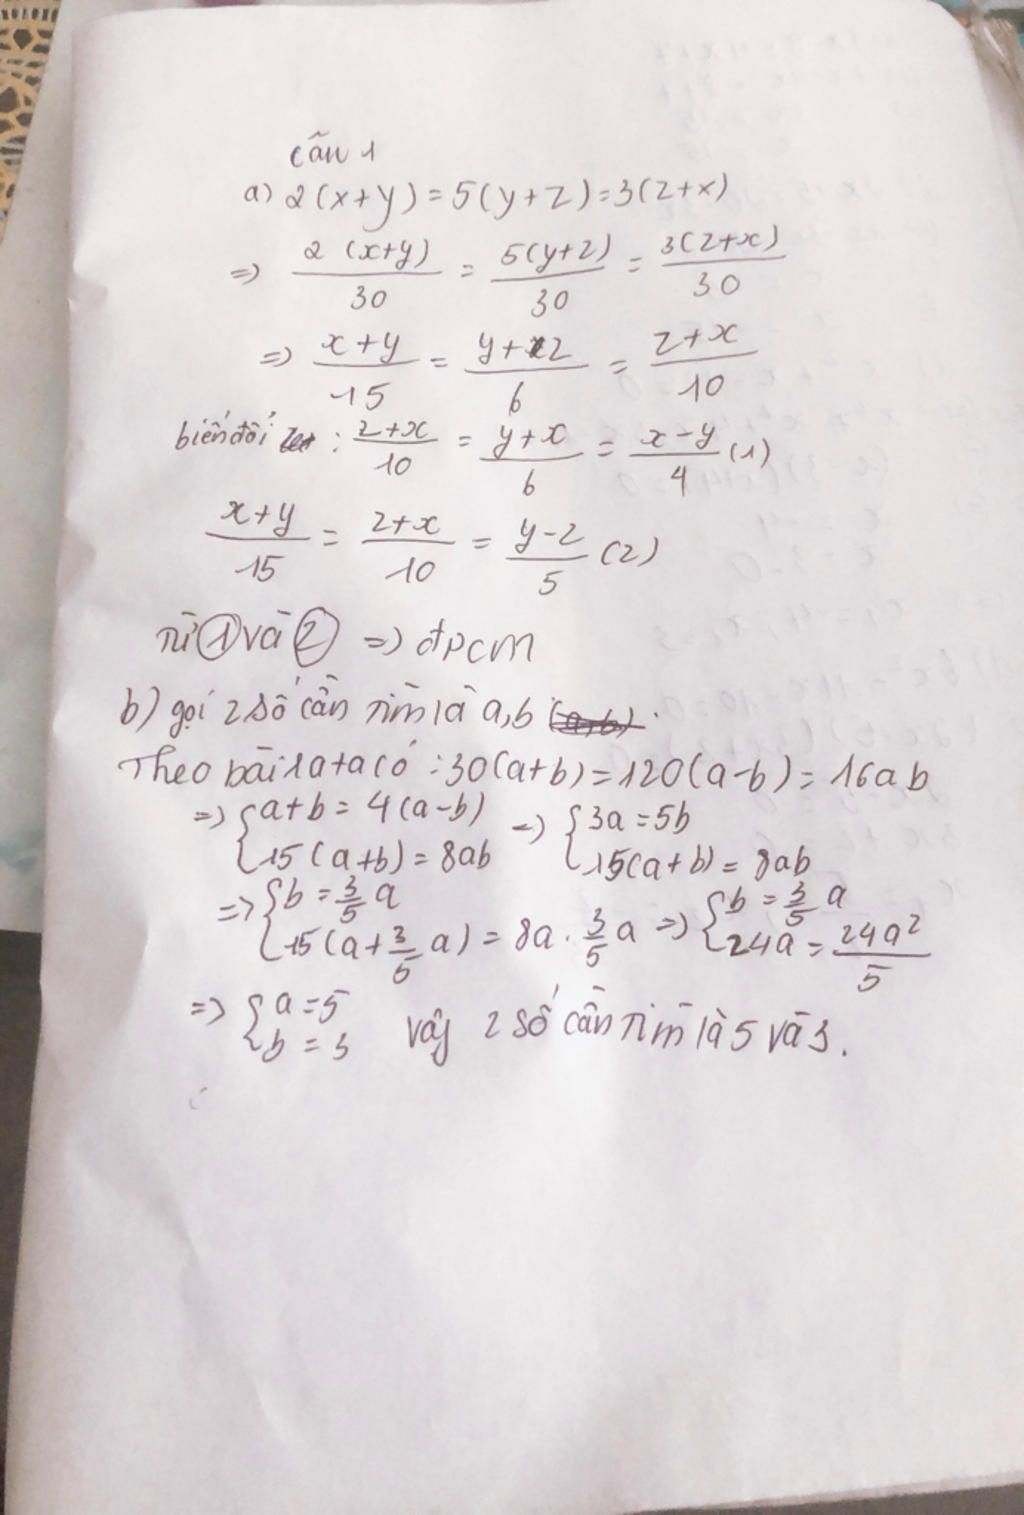 câu 1
a) 2(x+y)=5(y+z)=3(z+x)
=> 2(x+y)/30 = 5(y+z)/30 = 3(z+x)/30
=> x+y/15 = y+z/6 = z+x/10
biến đổi : z+x/10 = y+x/6 = x-y/4 (1)
x+y/15 = z+x/10 = y-z/5 (2)
Từ ① và ② => đpcm
b) gọi 2 số cần tìm là a,b
Theo bài ra ta có : 30(a+b)=120(a-b)=16ab
=> { a+b = 4(a-b) => { 3a = 5b
15(a+b) = 8ab 15(a+b) = 8ab
=> { b = 3/5 a => { b = 3/5 a
15(a+3/5 a) = 8a . 3/5 a 24a = 24a²/5
=> { a = 5
b = 3 vậy 2 số cần tìm là 5 và 3.